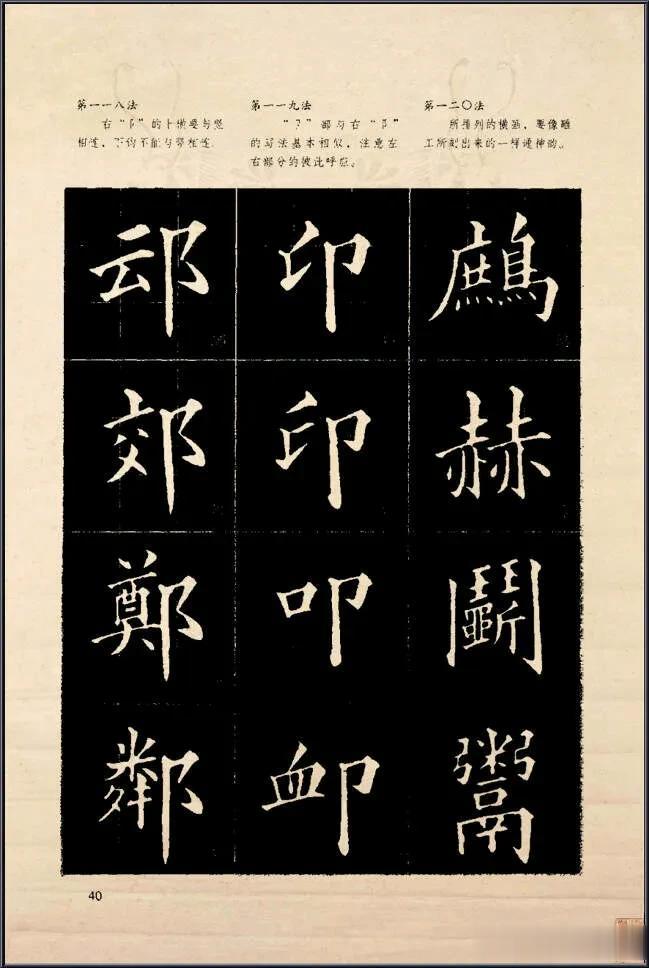 第一一八法
右“阝”的上横要与竖
相连,下钩不能与竖相连.
第一一九法
“卩”部与右“阝”
的写法基本相似,注意左
右部分的彼此呼应。
第一二〇法
所排列的横画,要像雕
工所刻出来的一样神韵。
䢵
郊
鄭
鄰
印
印
叩
卹
鷓
赫
鬭
鬻
40